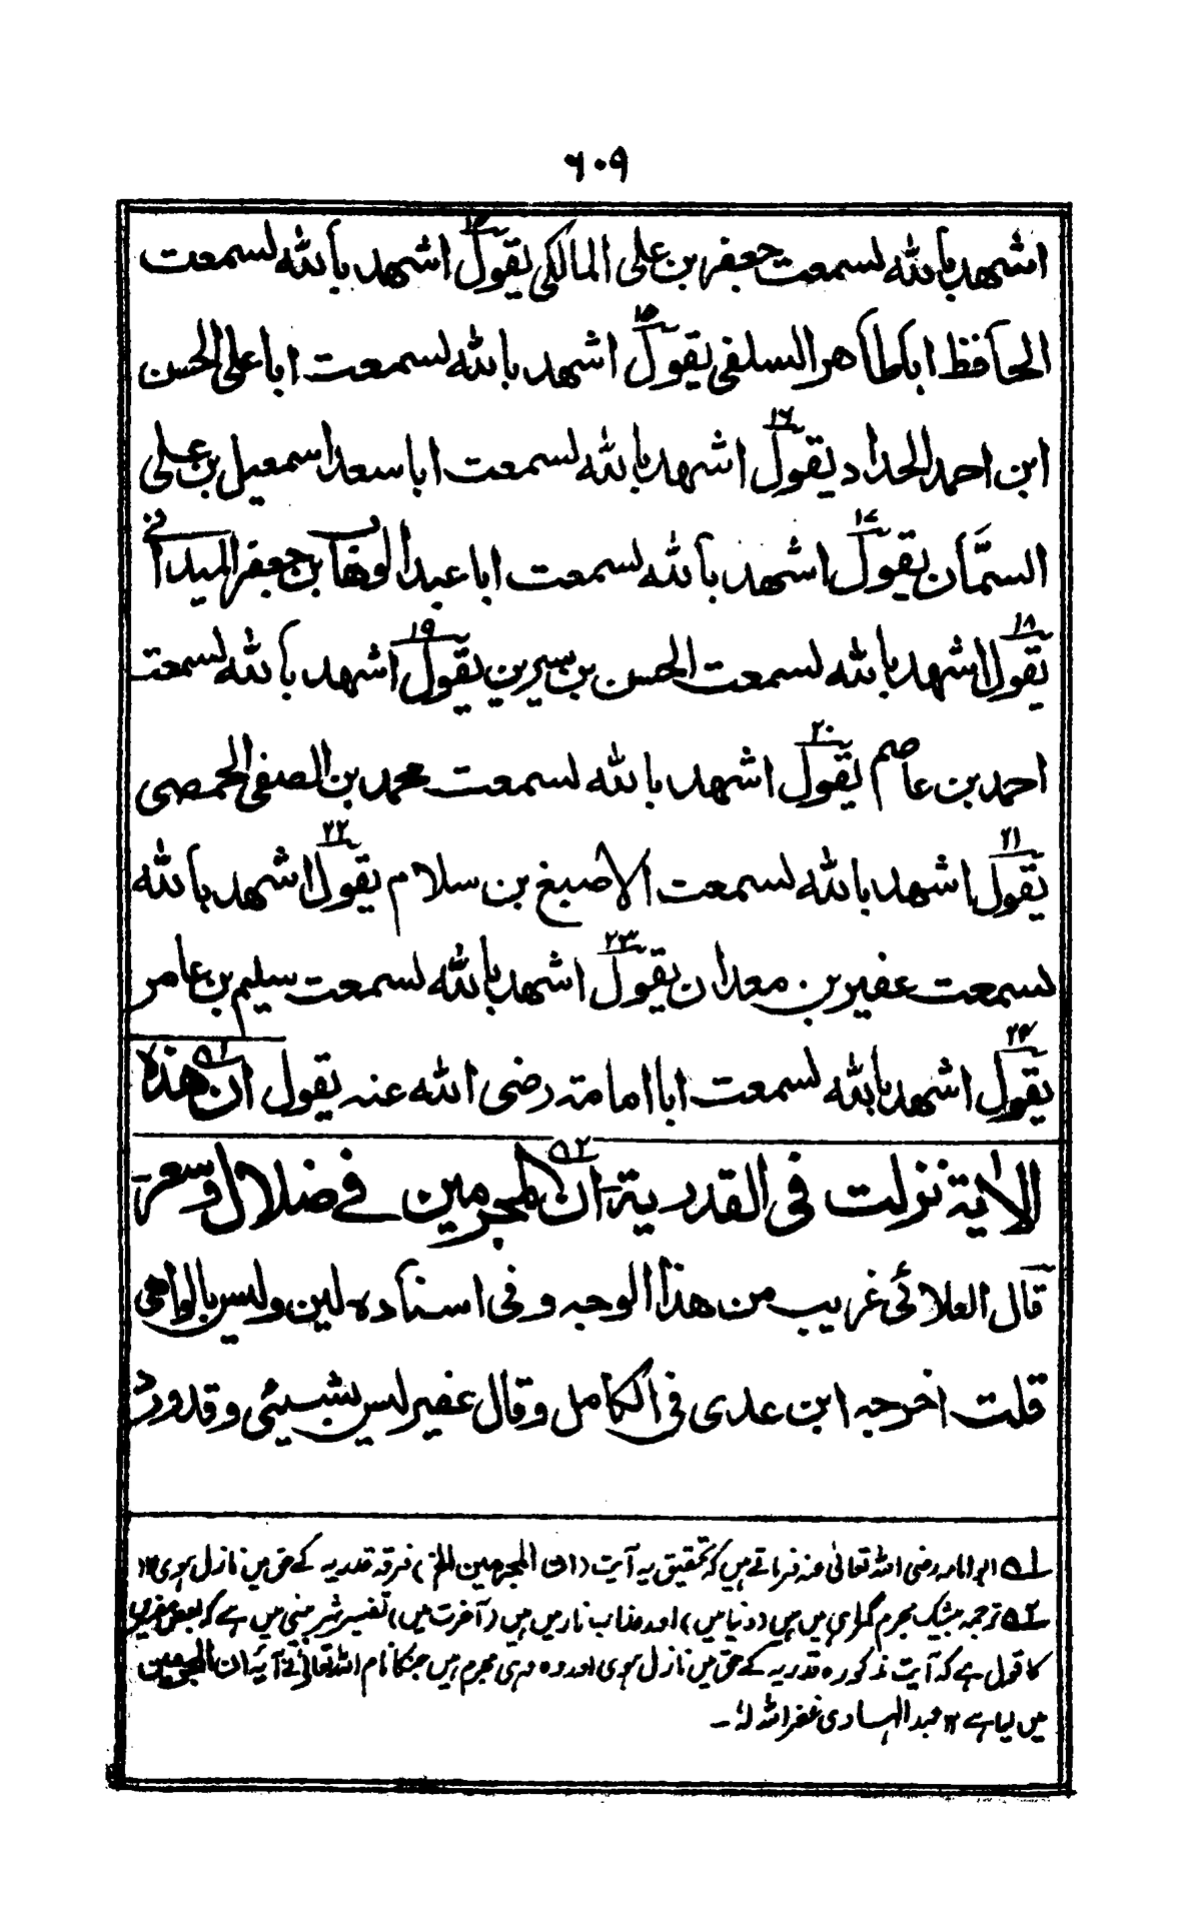 ٦٠٩
اشهد بالله لسمعت جعفر بن علی المالکی یقول ۱۴ اشهد بالله لسمعت
الحافظ اباطاهر السلفی یقول ۱۵ اشهد بالله لسمعت اباعلی الحسن
ابن احمد الحداد یقول ۱۶ اشهد بالله لسمعت اباسعد اسمعیل بن علی
السمّان یقول ۱۷ اشهد بالله لسمعت اباعبد الوهاب بن جعفر المیدانی
یقول ۱۸ اشهد بالله لسمعت الحسن بن سیرین یقول ۱۹ اشهد بالله لسمعت
احمد بن عاصم یقول ۲۰ اشهد بالله لسمعت محمد بن الصفی الحمصی
یقول ۲۱ اشهد بالله لسمعت الاصبغ بن سلام یقول ۲۲ اشهد بالله
لسمعت عفیر بن معدان یقول ۲۳ اشهد بالله لسمعت سلیم بن عامر
یقول ۲۴ اشهد بالله لسمعت اباامامة رضی الله عنه یقول ان هذه ۵۱
الاٰیة نزلت فی القدریة ان ۵۲ المجرمین فی ضلال وسعر
قال العلائی غریب من هذا الوجه وفی اسناده لین ولیس بالواهی
قلت اخرجه ابن عدی فی الکامل وقال عفیر لیس بشیئی وقد ورد
۵۱ ابو امامہ رضی اللہ تعالیٰ عنہ فرماتے ہیں کہ تحقیق یہ آیت (ان المجرمین الخ) فرقہ قدریہ کے حق میں نازل ہوی ۱۲
۵۲ ترجمہ بیشک مجرم گمراہی میں ہیں (دنیا میں) اور عذاب نار میں ہیں (آخرت میں) تفسیر شربینی میں ہے کہ بعض مفسرین
کا قول ہے کہ آیت مذکورہ قدریہ کے حق میں نازل ہوی اور وہ وہی مجرم ہیں جنکا نام اللہ تعالیٰ نے آیۂ ان المجرمین
میں لیا ہے ۱۲ عبد الہادی غفر اللہ لہٗ۔